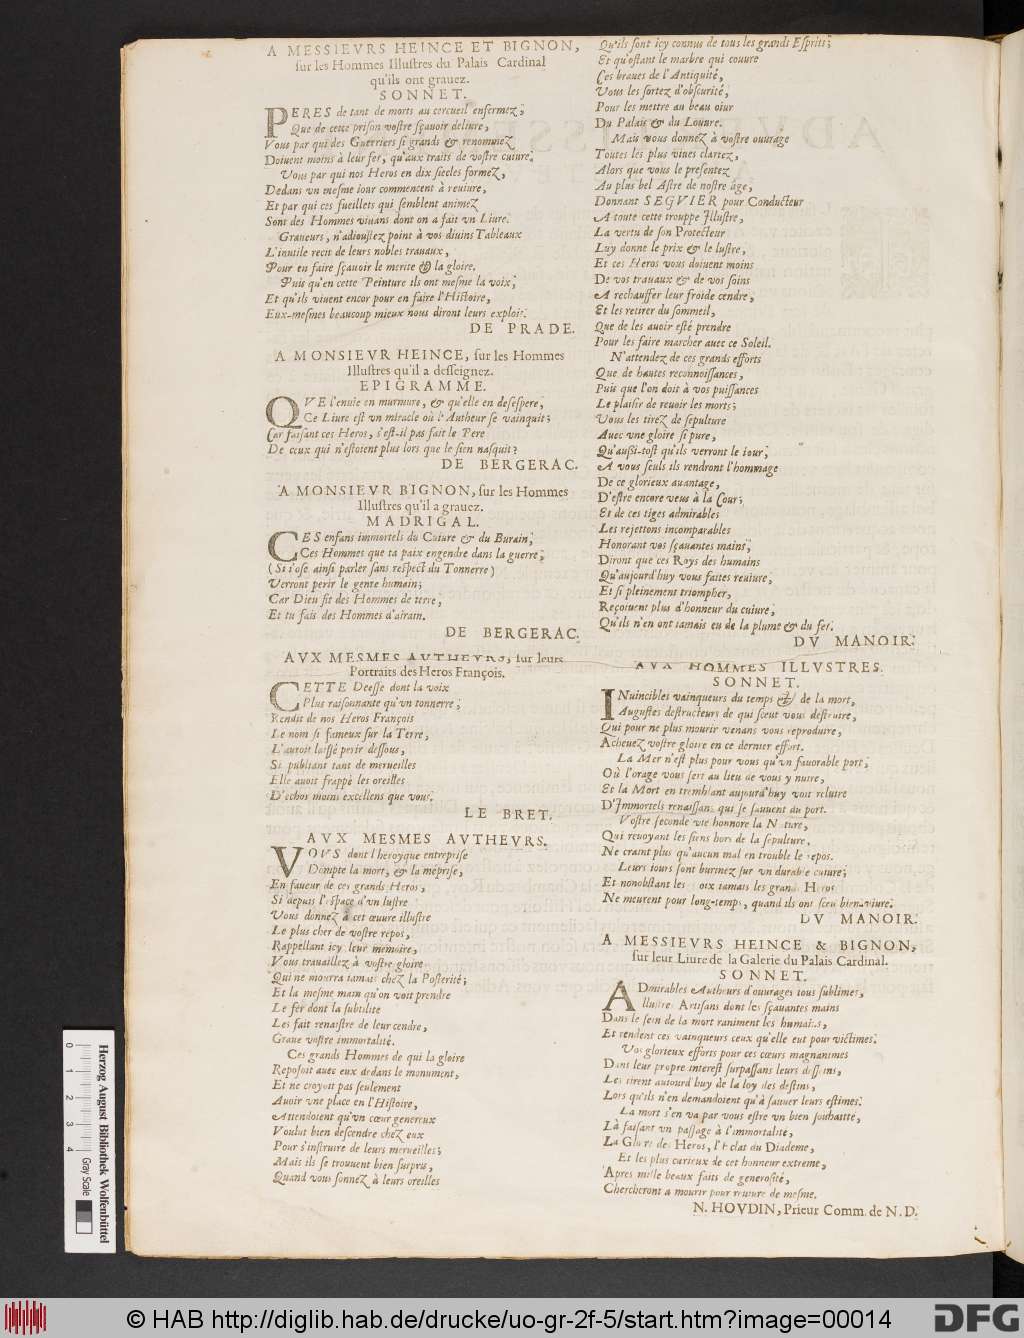 A MESSIEVRS HEINCE ET BIGNON,
sur les Hommes Illustres du Palais Cardinal
qu'ils ont grauez.
SONNET.
PERES de tant de morts au cercueil enfermez,
Que de cette prison vostre sçauoir deliure,
Vous par qui des Guerriers si grands & renommez
Doiuent moins à leur fer, qu'aux traits de vostre cuiure:
Vous par qui nos Heros en dix siecles formez,
Dedans vn mesme iour commencent à reuiure,
Et par qui ces fueillets qui semblent animez
Sont des Hommes viuans dont on a fait vn Liure.
Graueurs, n'adioustez point à vos diuins Tableaux
L'inutile recit de leurs nobles trauaux,
Pour en faire sçauoir le merite & la gloire.
Puis qu'en cette Peinture ils ont mesme la voix,
Et qu'ils viuent encor pour en faire l'Histoire,
Eux-mesmes beaucoup mieux nous diront leurs exploits.
DE PRADE.
A MONSIEVR HEINCE, sur les Hommes
Illustres qu'il a desseignez.
EPIGRAMME.
QVE l'enuie en murmure, & qu'elle en desespere,
Ce Liure est vn miracle où l'Autheur se vainquit;
Car faisant ces Heros, s'est-il pas fait le Pere
De ceux qui n'estoient plus lors que le sien nasquit?
DE BERGERAC.
A MONSIEVR BIGNON, sur les Hommes
Illustres qu'il a grauez.
MADRIGAL.
CES enfans immortels du Cuiure & du Burain,
Ces Hommes que ta paix engendre dans la guerre,
(Si i'ose ainsi parler sans respect du Tonnerre)
Verront perir le genre humain;
Car Dieu fit des Hommes de terre,
Et tu fais des Hommes d'airain.
DE BERGERAC.
AVX MESMES AVTHEVRS, sur leurs
Portraits des Heros François.
CETTE Deesse dont la voix
Plus raisonnante qu'vn tonnerre,
Rendit de nos Heros François
Le nom si fameux sur la Terre,
L'auroit laissé perir dessous,
Si publiant tant de merueilles
Elle auoit frappé les oreilles
D'echos moins excellens que vous.
LE BRET.
AVX MESMES AVTHEVRS.
VOVS dont l'heroyque entreprise
Dompte la mort, & la méprise,
En faueur de ces grands Heros,
Si depuis l'espace d'vn lustre
Vous donnez à cet œuure illustre
Le plus cher de vostre repos,
Rappellant icy leur memoire,
Vous trauaillez à vostre gloire
Qui ne mourra iamais chez la Posterité;
Et la mesme main qu'on voit prendre
Le fer dont la subtilité
Les fait renaistre de leur cendre,
Graue vostre immortalité.
Ces grands Hommes de qui la gloire
Reposoit auec eux dedans le monument,
Et ne croyoit pas seulement
Auoir vne place en l'Histoire,
Attendoient qu'vn cœur genereux
Voulut bien descendre chez eux
Pour s'instruire de leurs merueilles;
Mais ils se trouuent bien surpris,
Quand vous sonnez à leurs oreilles
Qu'ils sont icy connus de tous les grands Esprits;
Et qu'ostant le marbre qui couure
Ces braues de l'Antiquité,
Vous les sortez d'obscurité,
Pour les mettre au beau iour
Du Palais & du Louure.
Mais vous donnez à vostre ouurage
Toutes les plus viues clartez,
Alors que vous le presentez
Au plus bel Astre de nostre âge,
Donnant SEGVIER pour Conducteur
A toute cette trouppe Illustre,
La vertu de son Protecteur
Luy donne le prix & le lustre,
Et ces Heros vous doiuent moins
De vos trauaux & de vos soins
A rechauffer leur froide cendre,
Et les retirer du sommeil,
Que de les auoir esté prendre
Pour les faire marcher auec ce Soleil.
N'attendez de ces grands efforts
Que de hautes reconnoissances,
Puis que l'on doit à vos puissances
Le plaisir de reuoir les morts;
Vous les tirez de sepulture
Auec vne gloire si pure,
Qu'aussi-tost qu'ils verront le iour,
A vous seuls ils rendront l'hommage
De ce glorieux auantage,
D'estre encore veus à la Cour;
Et de ces tiges admirables
Les rejettons incomparables
Honorant vos sçauantes mains,
Diront que ces Roys des humains
Qu'aujourd'huy vous faites reuiure,
Et si pleinement triompher,
Reçoiuent plus d'honneur du cuiure,
Qu'ils n'en ont iamais eu de la plume & du fer.
DV MANOIR.
AVX HOMMES ILLVSTRES.
SONNET.
INuincibles vainqueurs du temps & de la mort,
Augustes destructeurs de qui sceut vous destruire,
Qui pour ne plus mourir venans vous reproduire,
Acheuez vostre gloire en ce dernier effort.
La Mer n'est plus pour vous qu'vn fauorable port,
Où l'orage vous sert au lieu de vous y nuire,
Et la Mort en tremblant aujourd'huy voit reluire
D'Immortels renaissans qui se sauuent du port.
Vostre seconde vie honnore la Nature,
Qui reuoyant les siens hors de la sepulture,
Ne craint plus qu'aucun mal en trouble le repos.
Leurs iours sont burinez sur vn durable cuiure;
Et nonobstant les loix iamais les grands Heros
Ne meurent pour long-temps, quand ils ont sceu bien-viure.
DV MANOIR.
A MESSIEVRS HEINCE & BIGNON,
sur leur Liure de la Galerie du Palais Cardinal.
SONNET.
ADmirables Autheurs d'ouurages tous sublimes,
Illustres Artisans dont les sçauantes mains
Dans le sein de la mort raniment les humains,
Et rendent ces vainqueurs ceux qu'elle eut pour victimes.
Vos glorieux efforts pour ces cœurs magnanimes
Dans leur propre interest surpassans leurs desseins,
Les tirent aujourd'huy de la loy des destins,
Lors qu'ils n'en demandoient qu'à sauuer leurs estimes.
La mort s'en va par vous estre vn bien souhaitté,
Là faisant vn passage à l'immortalité,
La Gloire des Heros, l'Eclat du Diademe,
Et les plus curieux de cet honneur extreme,
Apres mille beaux faits de generosité,
Chercheront à mourir pour reuiure de mesme.
N. HOVDIN, Prieur Comm. de N.D.
0 1 2 3 4
Gray Scale
Herzog August Bibliothek Wolfenbüttel
© HAB http://diglib.hab.de/drucke/uo-gr-2f-5/start.htm?image=00014
DFG